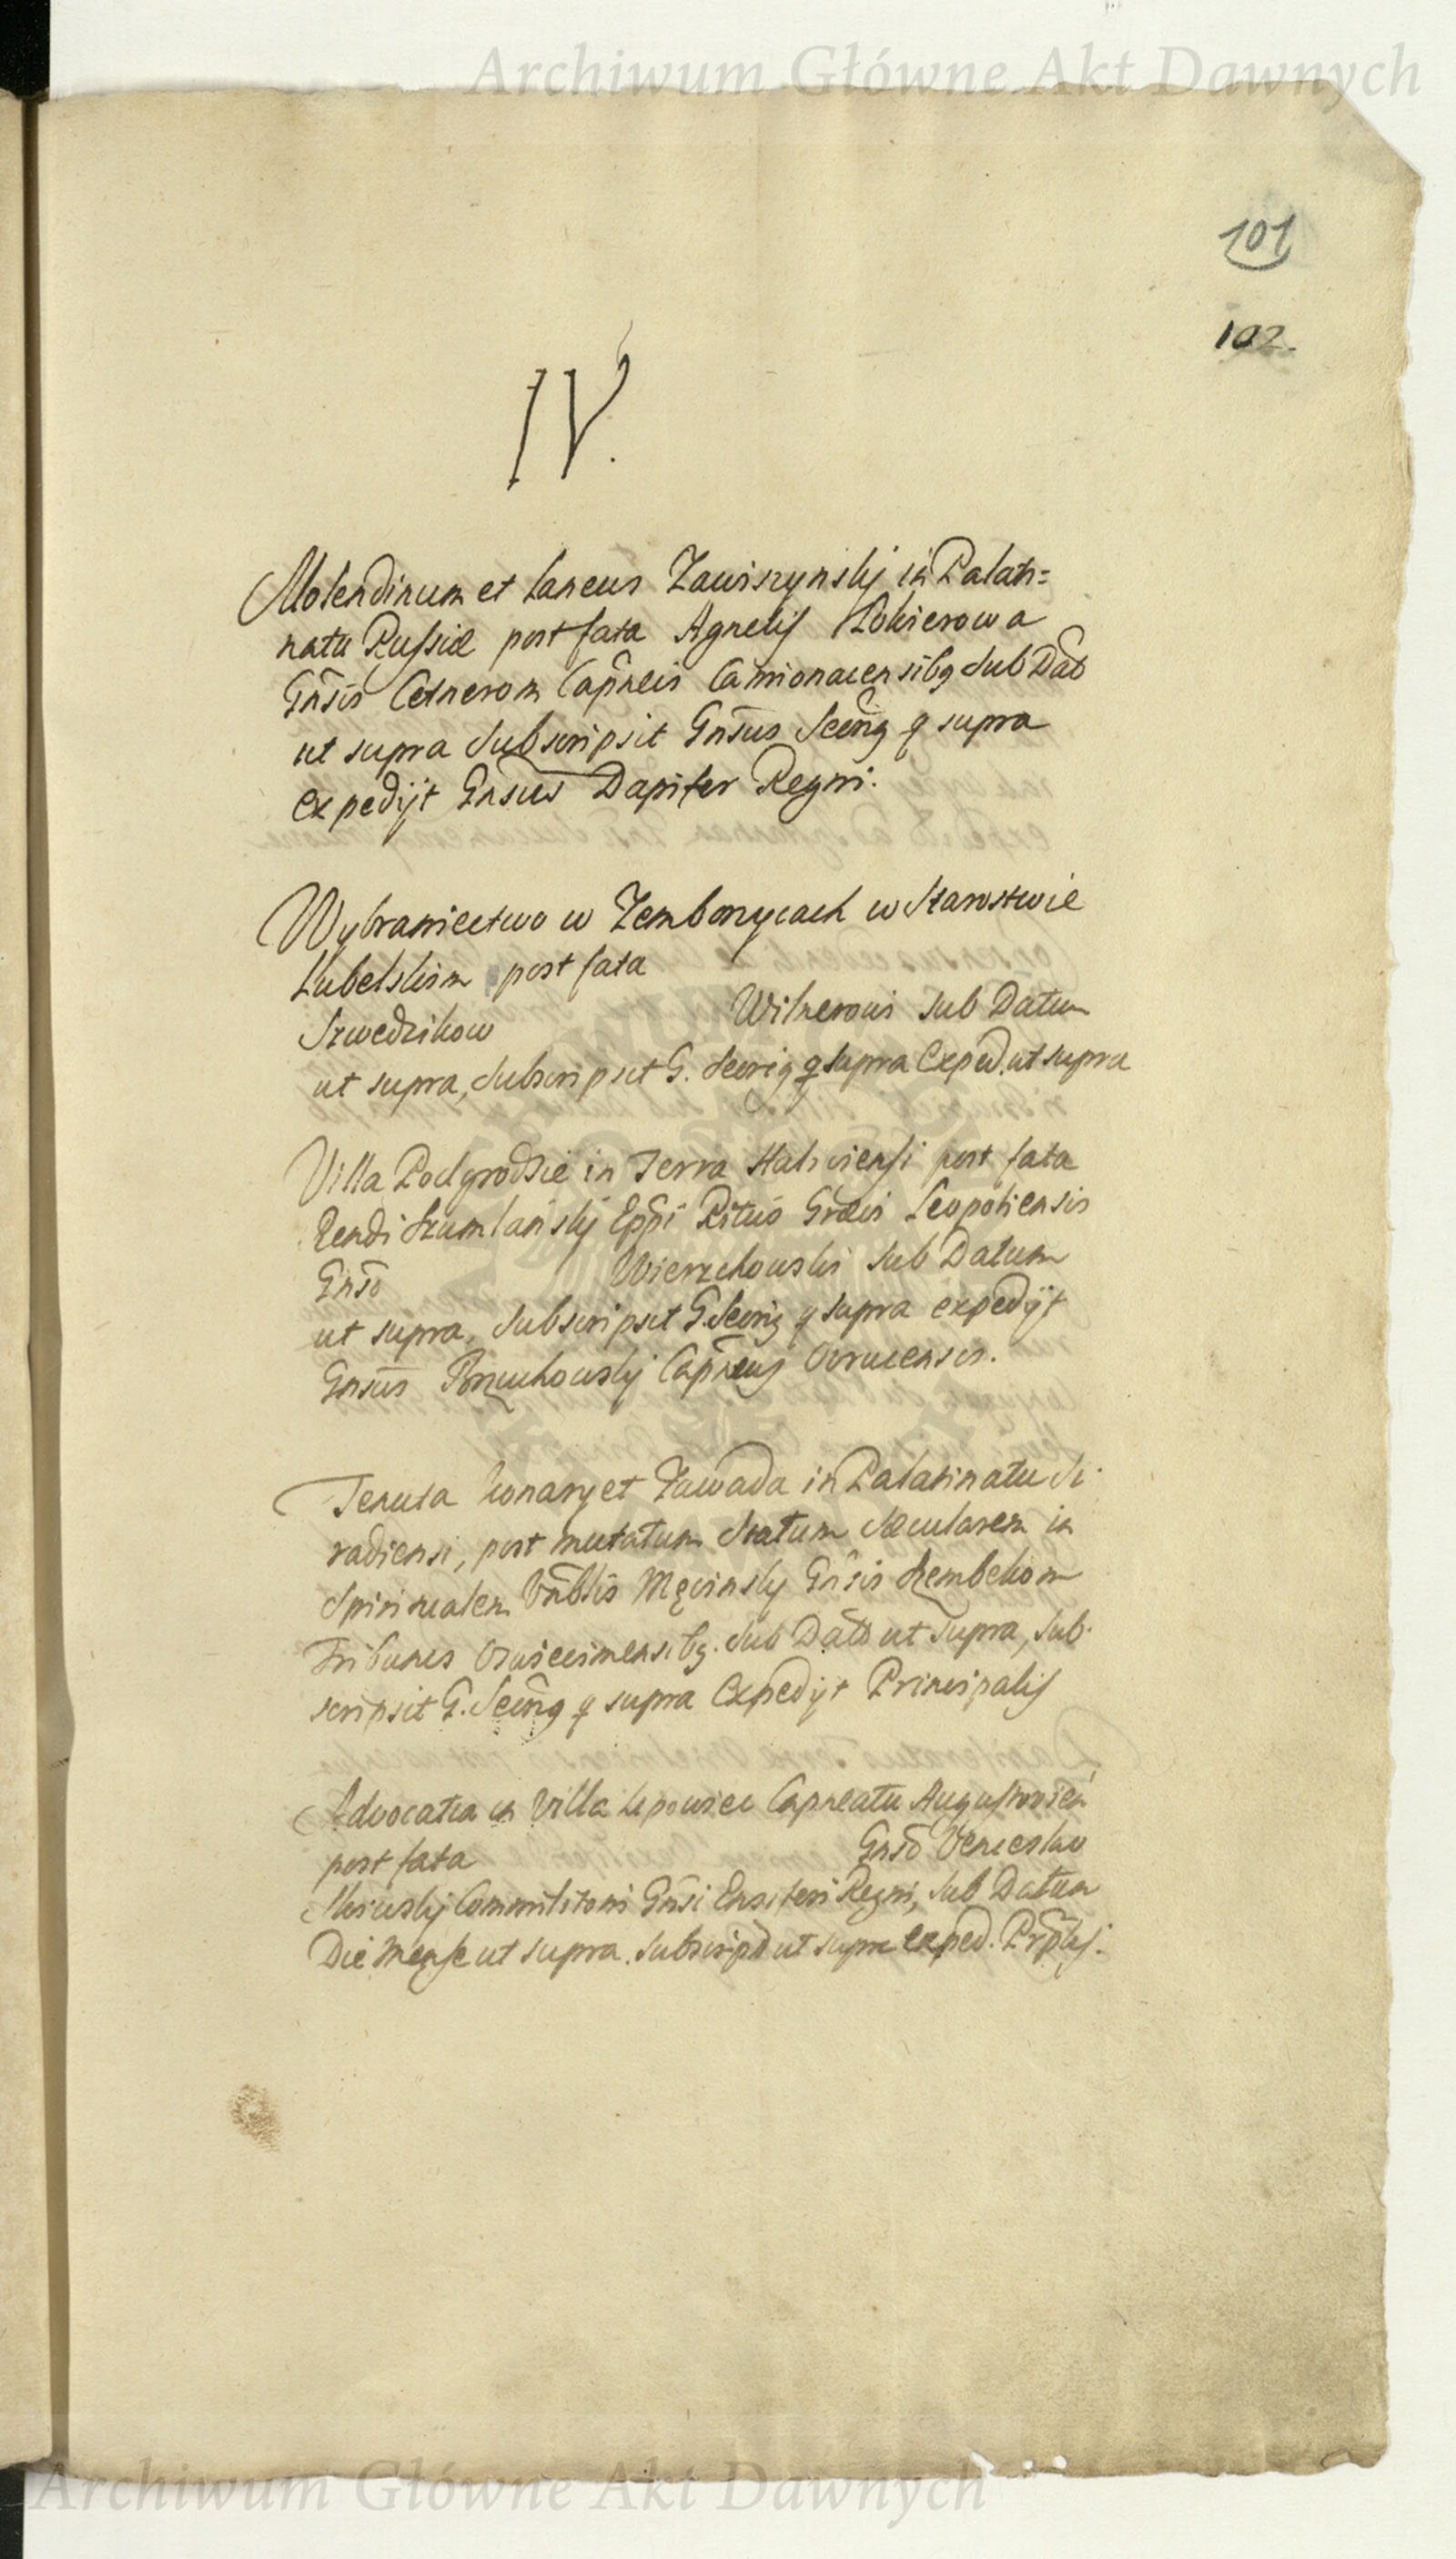 Archiwum Główne Akt Dawnych
101
102.
IV.
Molendinum et Laneus Zawiszynskj in Palati=
natu Russiæ post fata Agnetis Pokierowa
Gnsis Cetnerom Capneis Camionacensibq Sub Dato
ut supra Subscripsit Gnsus Secrirg q supra
expedijt Gnsus Dapifer Regni.
Wybraniectwo w Zemborzycach w Starostwie
Lubelskim post fata
Szwedzikow Wilnerowi Sub Datum
ut supra, Subscripsit G. Secrig q supra Exped. ut supra
Villa Podgrodzie in Terra Haliciensi post fata
Rendi Szumlanskj Eppi Ritus Græci Leopoliensis
Gnso Wierzchowski Sub Datum
ut supra, Subscripsit G. Secrig q supra expedijt
Gnsus Borzuchowskj Capneus Owrucensis.
Tenuta Konary et Zawada in Palatinatu Si
radiensi, post mutatum Statum Sæcularem in
Spiritualem Vnblis Męcinsky Gnsis Szembekom
Tribunis Oswiecimensibq. Sub Dato ut Supra, Sub
scripsit G. Secrig q supra Expedijt Principalis
Advocatia in Villa Lipowiec Capneatu Augustovien
post fata Gnso Venceslao
Commilitoni Gnsi Ensiferi Regni, Sub Datum
Die Mense ut supra. Subscripsit ut supra exped. Prplis.
Archiwum Główne Akt Dawnych